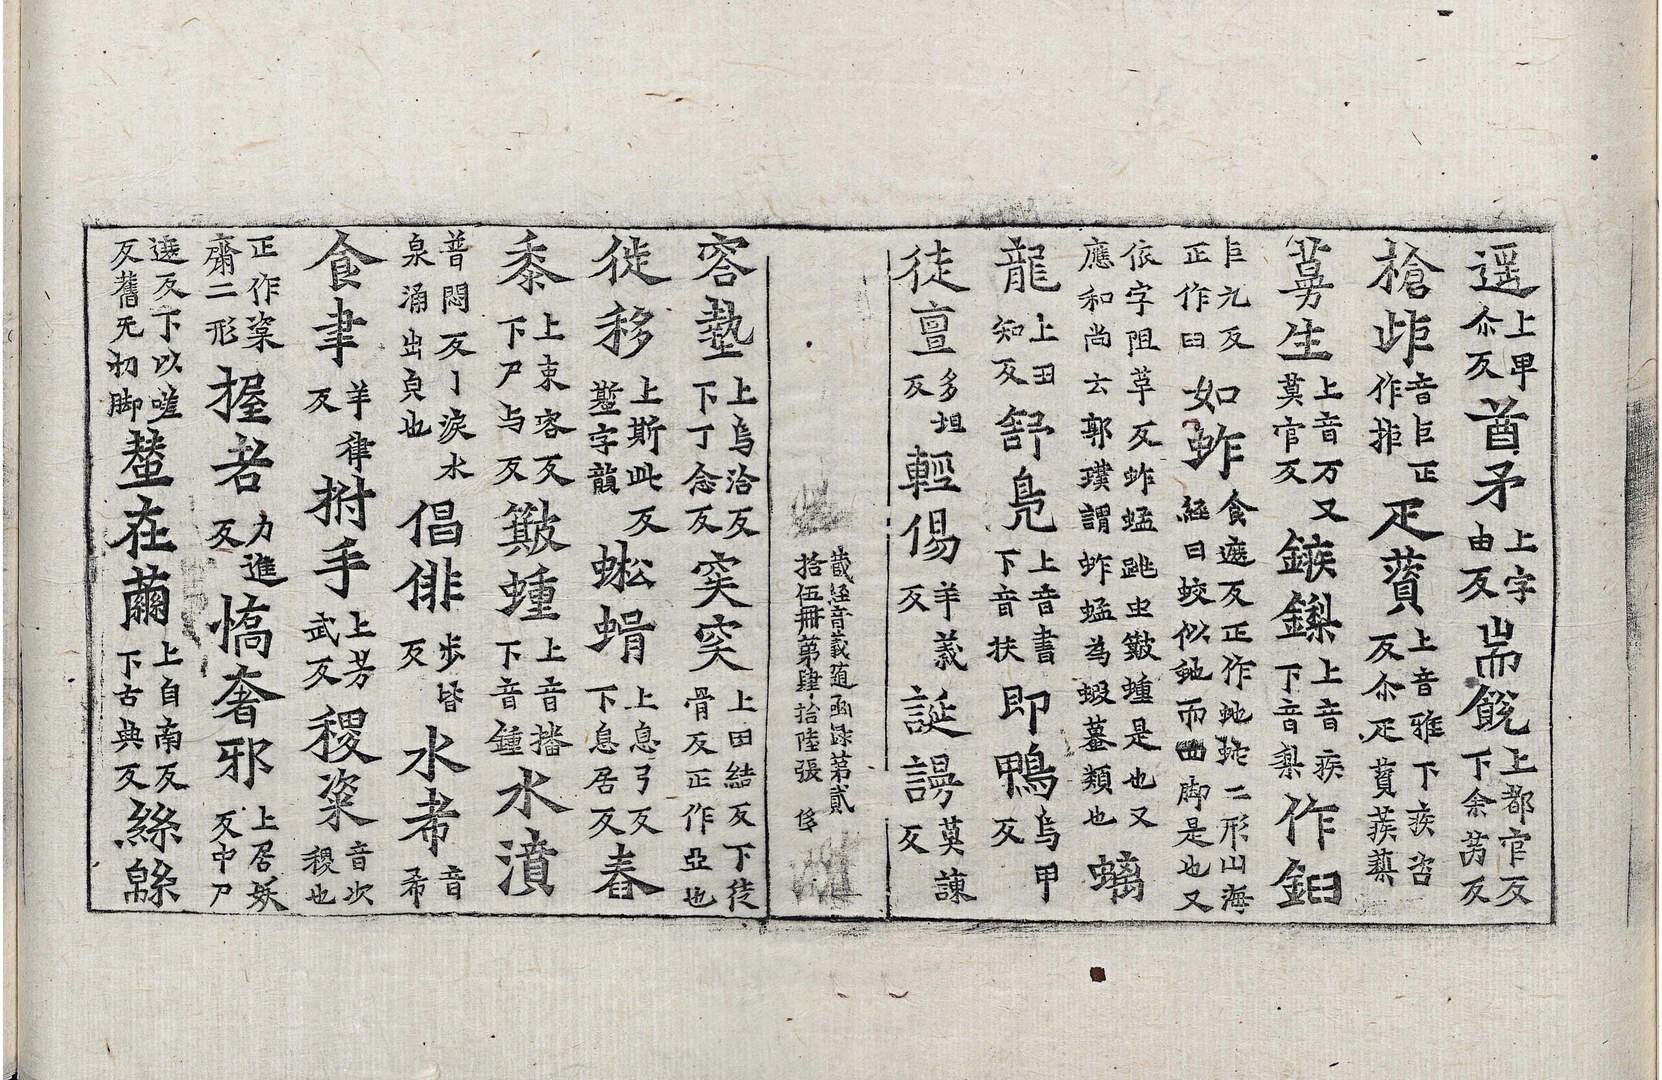 遥尒反上甲酋矛由反上字耑餽上都官反下余芮反
槍歫音巨正作拒疋蕒上音雅下疾咨反尒疋蕒蒺䔧
蔓生上音万又莫官反鏃鏫上音疾下音梨作䦆
臣九反正作臼如蚱食遮反正作虵蛇二形山海經曰蛟似虵而四脚是也又
依字阻草反蚱蜢跳虫䉤蝩是也又應和尚云郭璞謂蚱蜢為蝦蟇類也螭
龍上丑知反舒鳧上音書下音扶即鴨烏甲反
徒亶多坦反輕傷羊義反誕謾莫諫反
藏經音義隨函録第貳拾伍冊第肆拾陸張
容墊上烏洽反下丁念反突穾上田結反下徒骨反正作亞也
徙移上斯此反䥯字韻蜙蝑上息弓反下息居反舂
黍上束容反下尸与反䉤蝩上音播下音鍾水濆
普悶反丁淚水泉涌出皃也倡俳步皆反水希音希
食聿羊律反拊手上芳武反稷粢音次稷也
正作粢齋二形握若力進反憍奢邪上居妖反中尸
遮反下以嗟反舊无切脚蠶在繭上自南反下古典反絲緜